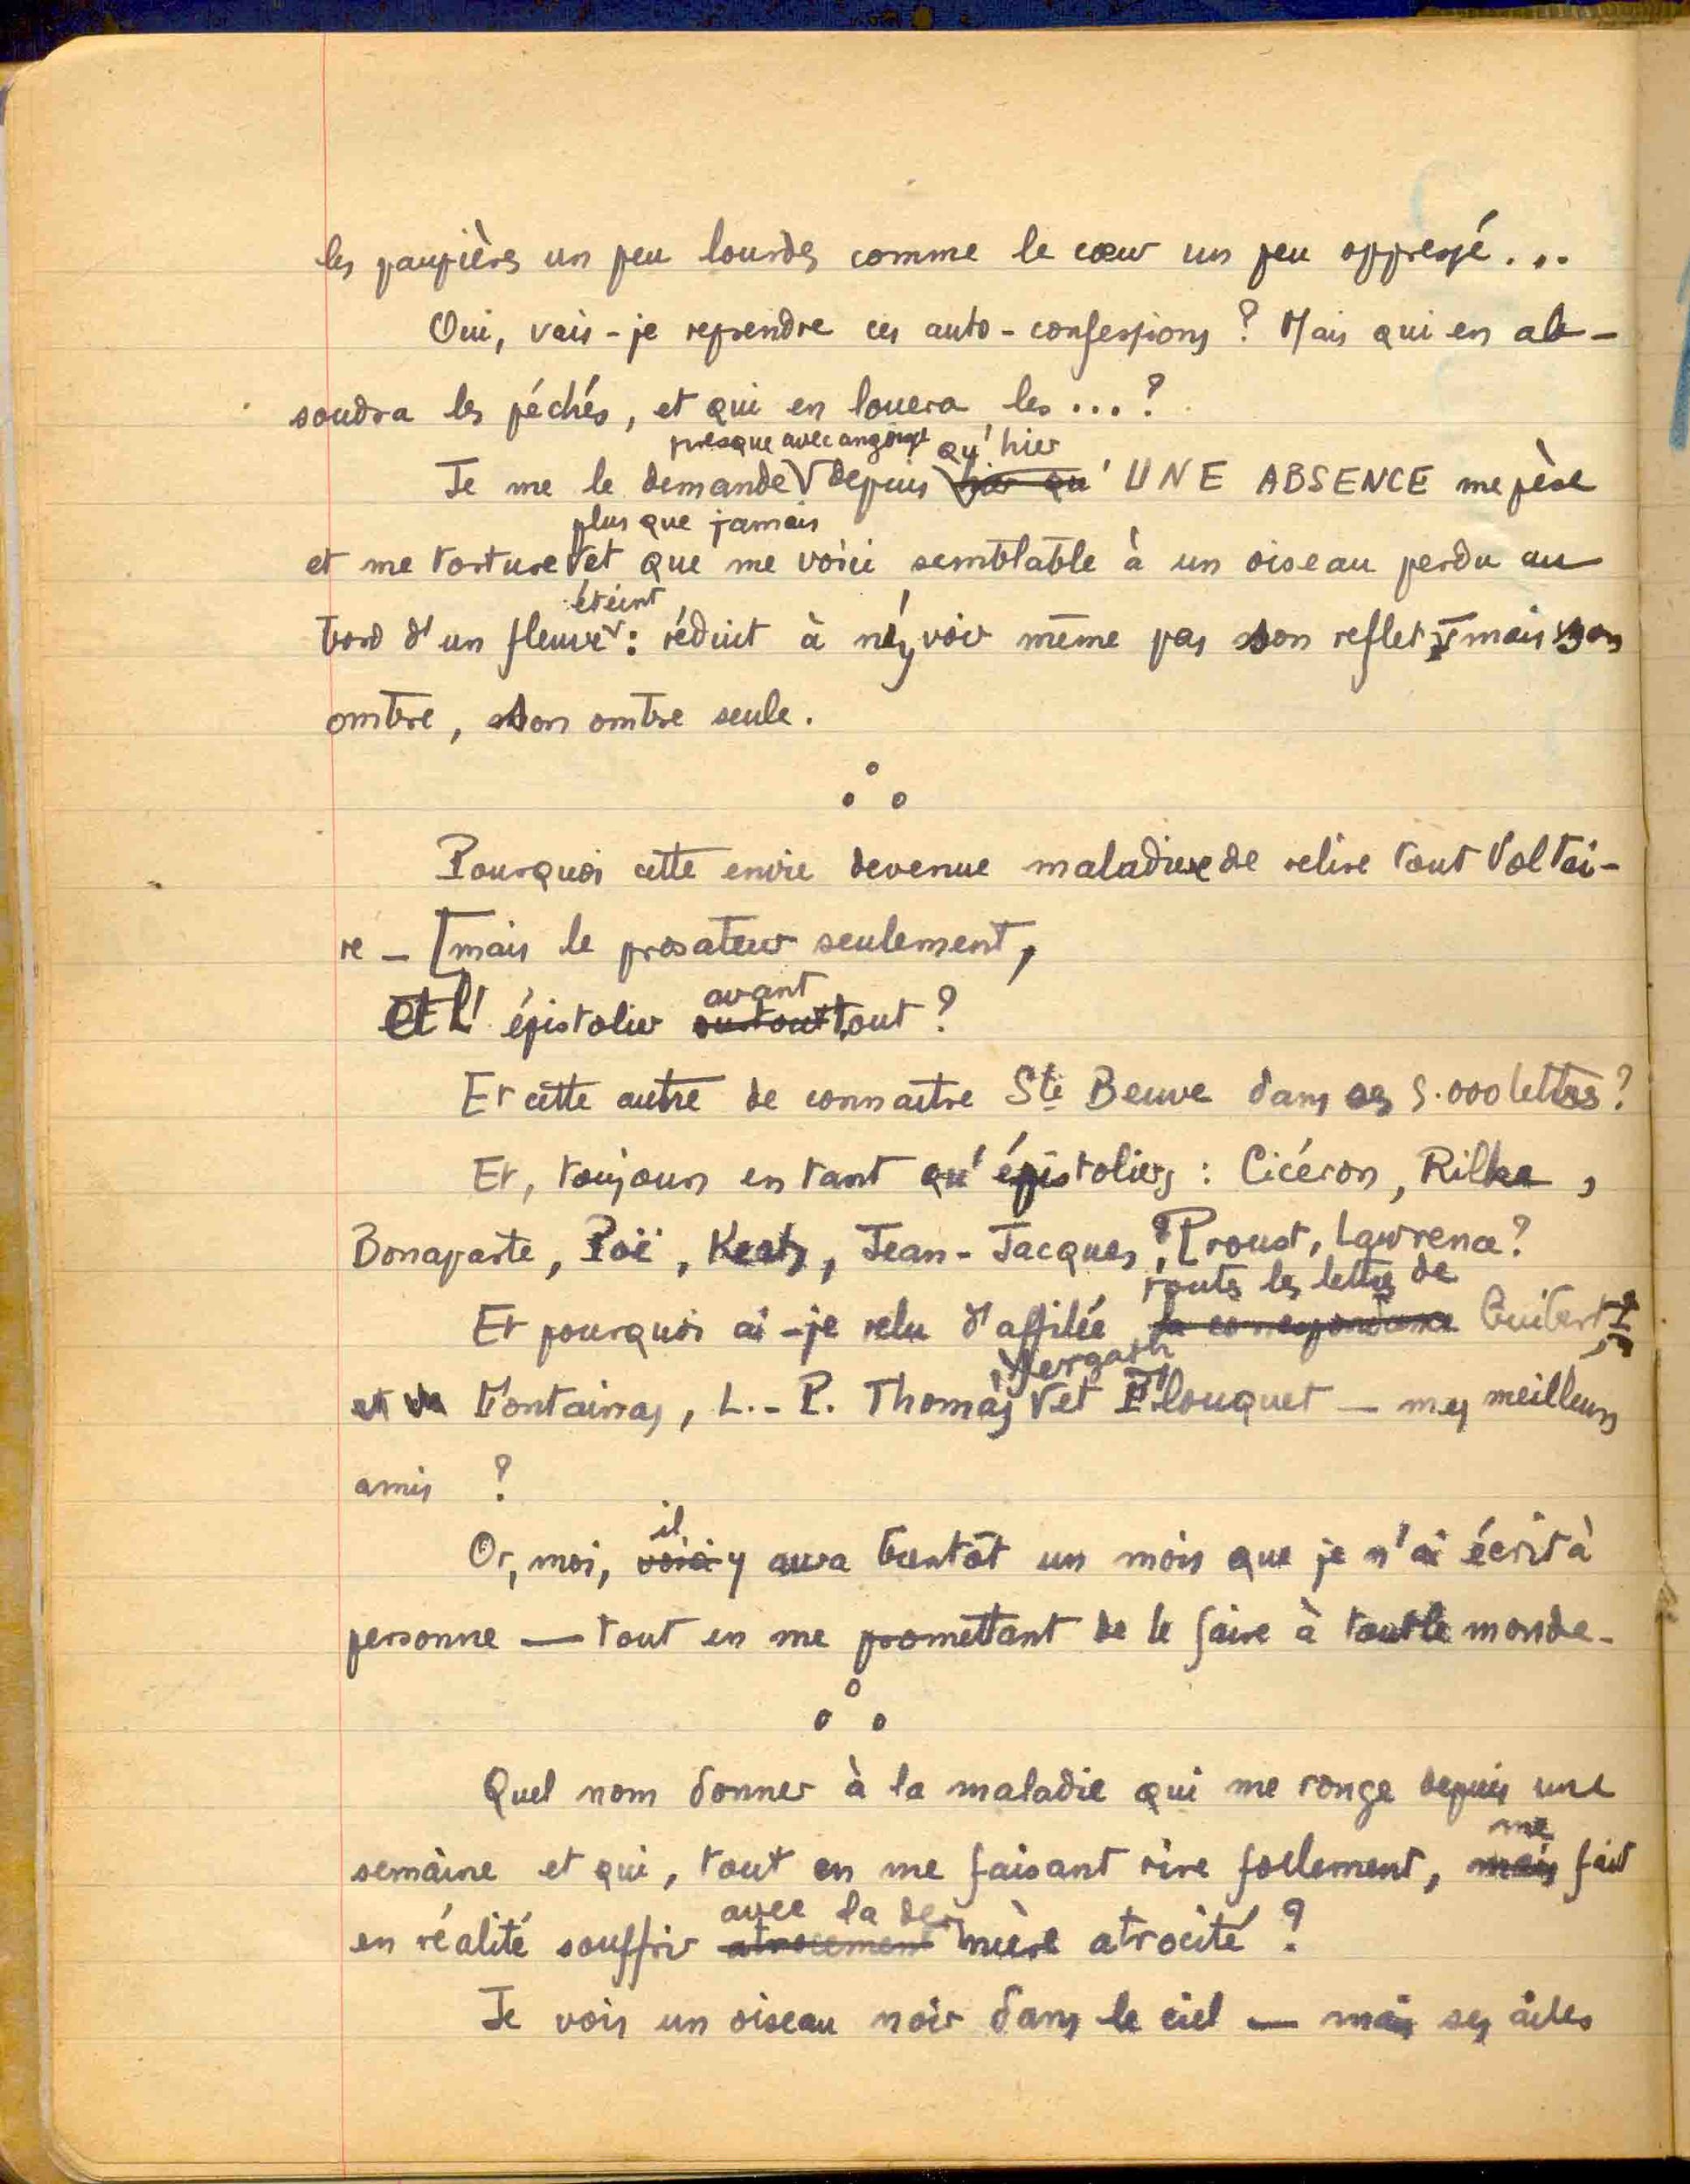 les paupières un peu lourdes comme le cœur un peu oppressé...
Oui, vais-je reprendre ces auto-confessions ? Mais qui en ab-
soudra les péchés, et qui en louera les...?
presque avec angoisse qu'hier
Je me le demande depuis hier qu' UNE ABSENCE me pèse
plus que jamais
et me torture et que me voici semblable à un oiseau perdu au
éteint
bord d'un fleuve : réduit à n'y voir même pas son reflet, mais son
ombre, son ombre seule.
Pourquoi cette envie devenue maladive de relire tout Voltai-
re - [mais le prosateur seulement,
et l'épistolier
avant
surtout tout ?
Et cette autre de connaître Ste Beuve dans ses 5.000 lettres ?
Et, toujours en tant qu'épistoliers : Cicéron, Rilke,
Bonaparte, Poë, Keats, Jean-Jacques, Proust, Lawrence ?
toutes les lettres de
Et pourquoi ai-je relu d'affilée la correspondance Guibert,
Nergash
et Fontainas, L.-P. Thomas et Flouquet — mes meilleurs
amis ?
il
Or, moi, voici y aura bientôt un mois que je n'ai écrit à
personne — tout en me promettant de le faire à tout le monde.
Quel nom donner à la maladie qui me ronge depuis une
me
semaine et qui, tout en me faisant rire follement, mais fait
avec la der
en réalité souffrir atrocement nière atrocité ?
Je vois un oiseau noir dans le ciel — mais ses ailes